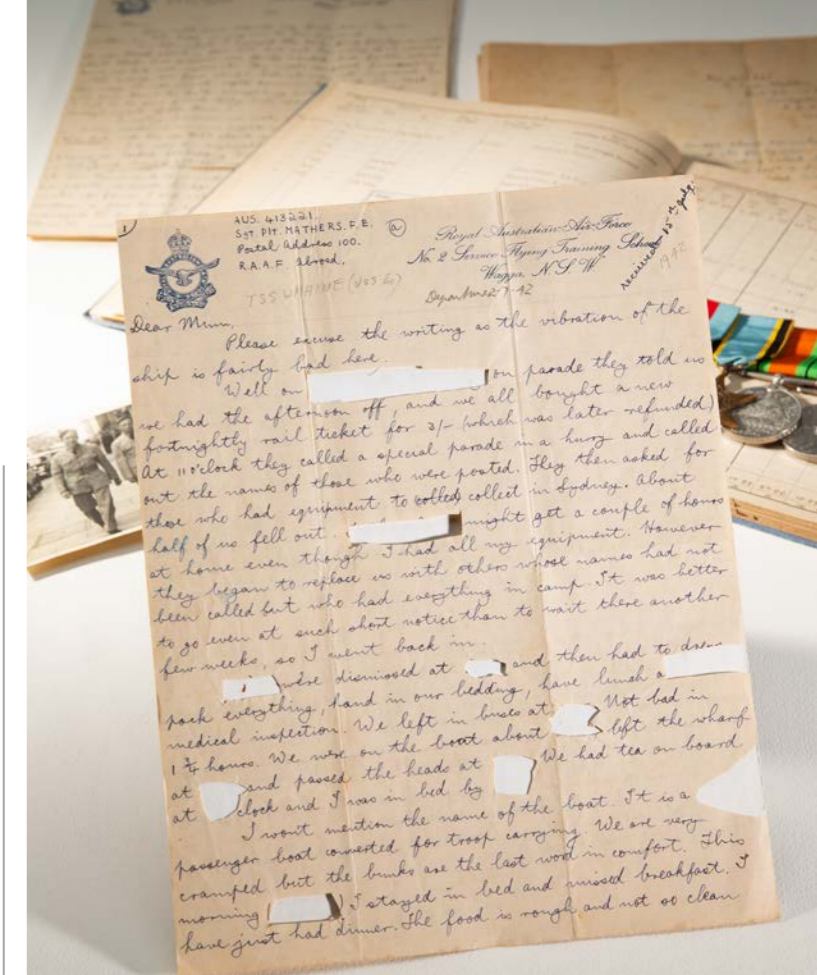 1
AUS. 413221.
Sgt. Plt. MATHERS. F. E.
Postal Address 100.
R.A.A.F. Abroad.
a
Royal Australian Air Force
No. 2 Service Flying Training School
Wagga, N.S.W.
received 15th July.
1942
2-7-42
Dear Mum,
Please excuse the writing as the vibration of the
ship is fairly bad here.
Well on on parade they told us
we had the afternoon off, and we all bought a new
fortnightly rail ticket for 3/- (which was later refunded)
At 11 o'clock they called a special parade in a hurry and called
out the names of those who were posted. They then asked for
those who had equipment to collect in Sydney. About
half of us fell out. might get a couple of hours
at home even though I had all my equipment. However
they began to replace us with others whose names had not
been called but who had everything in camp. It was better
to go even at such short notice than to wait there another
few weeks, so I went back in.
were dismissed at and then had to
pack everything, hand in our bedding, have lunch a
medical inspection. We left in buses at Not bad in
1 3/4 hours. We were on the boat about left the wharf
at and passed the heads at We had tea on board
at clock and I was in bed by
I wont mention the name of the boat. It is a
passenger boat converted for troop carrying. We are very
cramped but the bunks are the last word in comfort. This
morning ) I stayed in bed and missed breakfast. I
have just had dinner. The food is rough and not oo clean